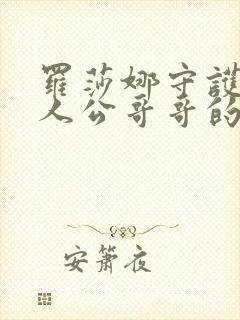 羅莎娜守護
人公哥哥的
安簫夜